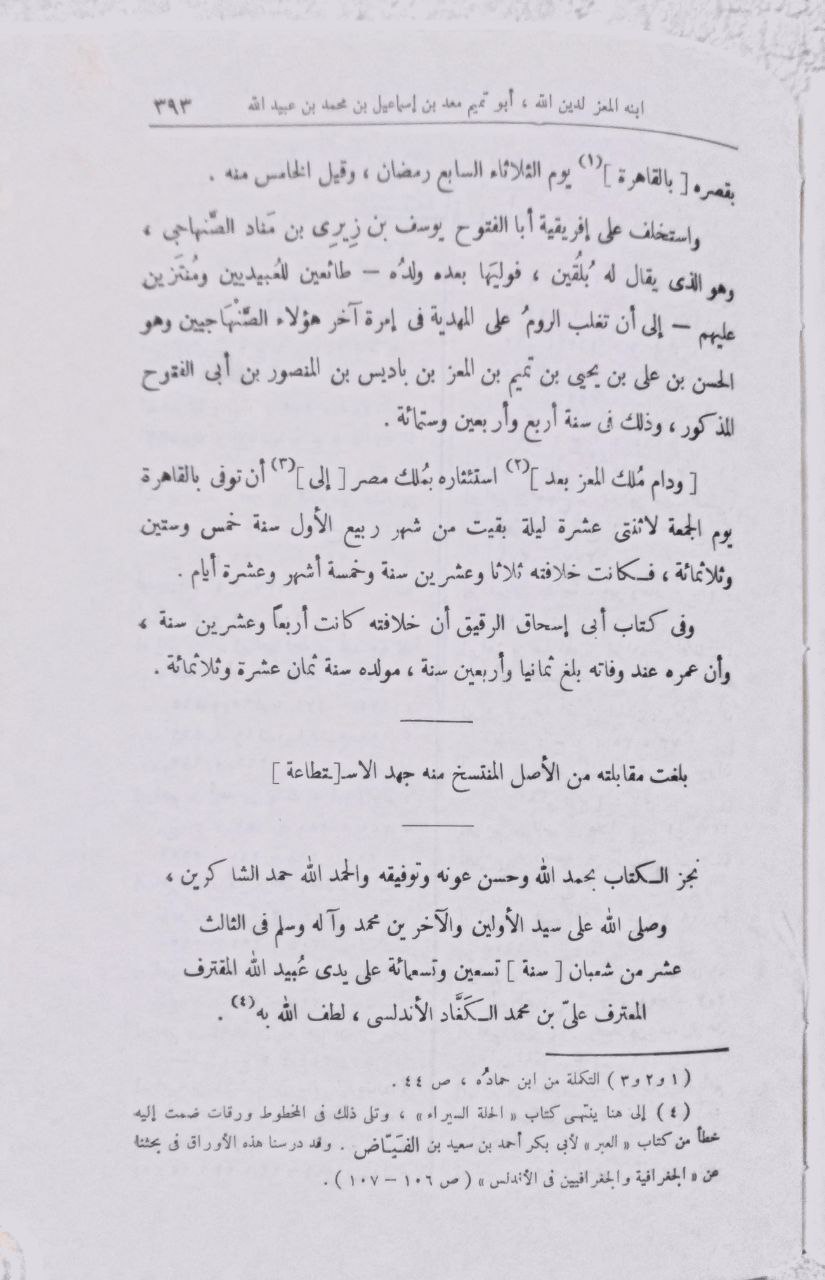 ابنه المعز لدين الله ، أبو تميم معد بن إسماعيل بن محمد بن عبيد الله ٣٩٣
بقصره [ بالقاهرة ](١) يوم الثلاثاء السابع رمضان ، وقيل الخامس منه .
واستخلف على إفريقية أبا الفتوح يوسف بن زِيرِى بن مَناد الصِّنهاجى ،
وهو الذى يقال له بُلُقِّين ، فوليَها بعده ولدُه – طائعين للعُبيديين ومُنتَزين
عليهم – إلى أن تغلب الرومُ على المهدية فى إمرة آخر هؤلاء الصِّنْهَاجيين وهو
الحسن بن على بن يحيى بن تميم بن المعز بن باديس بن المنصور بن أبى الفتوح
المذكور ، وذلك فى سنة أربع وأربعين وستمائة .
[ ودام مُلك المعز بعد ](٢) استئثاره بمُلك مصر [ إلى ](٣) أن توفى بالقاهرة
يوم الجمعة لاثنتى عشرة ليلة بقيت من شهر ربيع الأول سنة خمس وستين
وثلاثمائة ، فكانت خلافته ثلاثا وعشرين سنة وخمسة أشهر وعشرة أيام .
وفى كتاب أبى إسحاق الرقيق أن خلافته كانت أربعاً وعشرين سنة ،
وأن عمره عند وفاته بلغ ثمانيا وأربعين سنة ، مولده سنة ثمان عشرة وثلاثمائة .
بلغت مقابلته من الأصل المنتسخ منه جهد الاسـ[ـتطاعة ]
نجز الكتاب بحمد الله وحسن عونه وتوفيقه والحمد الله حمد الشاكرين ،
وصلى الله على سيد الأولين والآخرين محمد وآله وسلم فى الثالث
عشر من شعبان [ سنة ] تسعين وتسعمائة على يدى عُبيد الله المقترف
المعترف علىّ بن محمد الكَغَّاد الأندلسى ، لطف الله به(٤) .
(١ و٢ و٣ ) التكملة من ابن حمادُه ، ص ٤٤ .
(٤) إلى هنا ينتهى كتاب « الحلة السيراء » ، وتلى ذلك فى المخطوط ورقات ضمت إليه
خطأ من كتاب « العبر » لأبى بكر أحمد بن سعيد بن الفيّاض . وقد درسنا هذه الأوراق فى بحثنا
عن « الجغرافية والجغرافيين فى الأندلس » ( ص ١٠٦ – ١٠٧ ) .